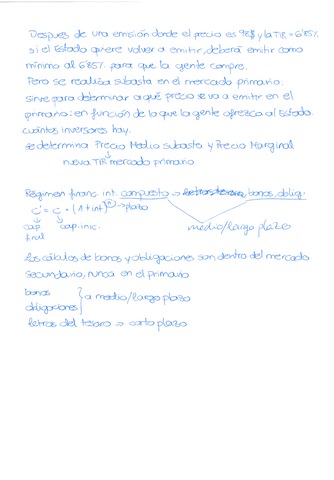 Después de una emisión donde el precio es 98$ y la TIR = 6'85%
si el Estado quiere volver a emitir, deberá emitir como
mínimo al 6'85% para que la gente compre.
Pero se realiza subasta en el mercado primario:
sirve para determinar a qué precio se va a emitir en el
primario: en función de lo que la gente ofrezca al Estado.
cuántos inversores hay.
se determina Precio Medio subasta y Precio Marginal
↓
nueva TIR mercado primario
Régimen financ. int. compuesto → letras tesoro, bonos, oblig.
C' = C · (1+int)ⁿ → plazo
cap. final cap. inic. medio/largo plazo
Los cálculos de bonos y obligaciones son dentro del mercado
secundario, nunca en el primario
bonos
obligaciones } a medio/largo plazo
letras del tesoro → corto plazo